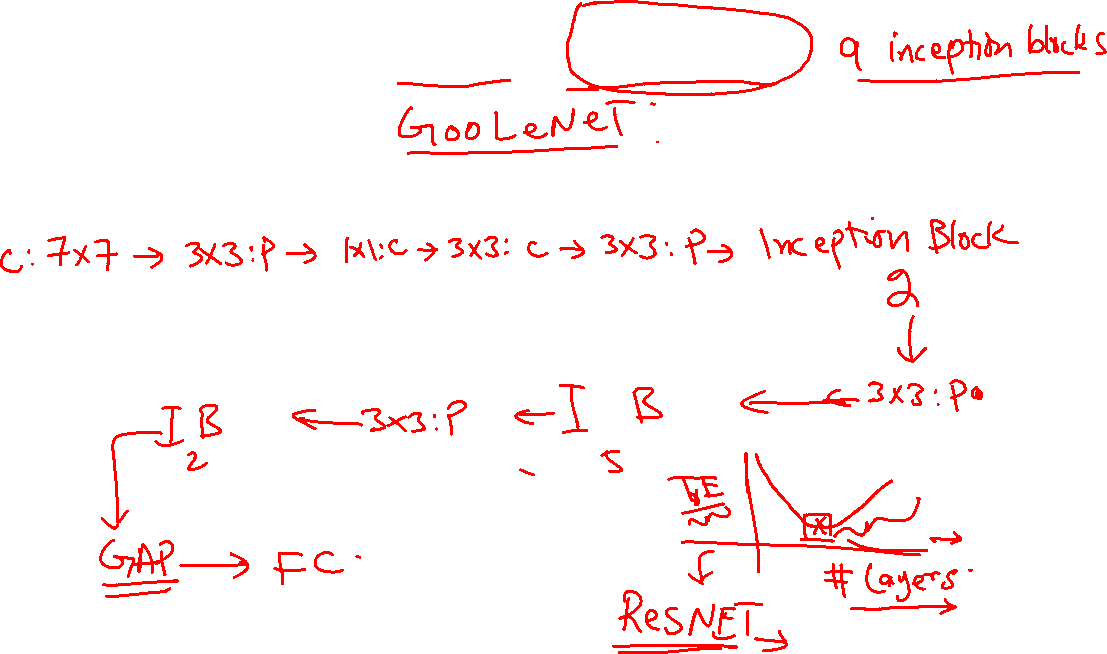 9 inception blocks
GooLeNeT.
C: 7x7 → 3x3:P → 1x1:C → 3x3: C → 3x3: P → Inception Block
2
I B ← 3x3:P ← I B ← 3x3:P
2 5
TE
GAP → FC.
# Layers.
ResNET →